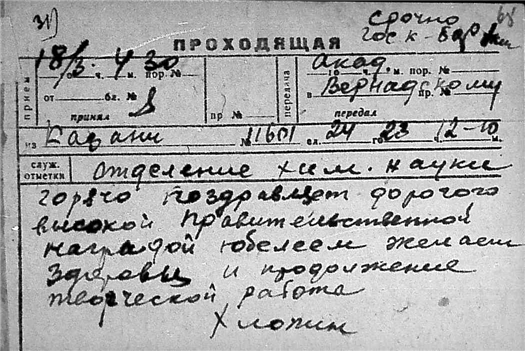 31) срочно 68
гос к-
ПРОХОДЯЩАЯ
18/3 4 30 Акад
ч. м. пор. № ч. м. пор. №
прием от бл. № передача в Вернадскому пр. №
принял пр № передал
из Казани № 11601 сл. 24 23 ч. 12-10 м.
служ. отметки Отделение хим. науки
горячо поздравляет дорогого
высокой правительственной
наградой юбелеем желаем
здоровья и продолжение
творческой работа
Хлопин